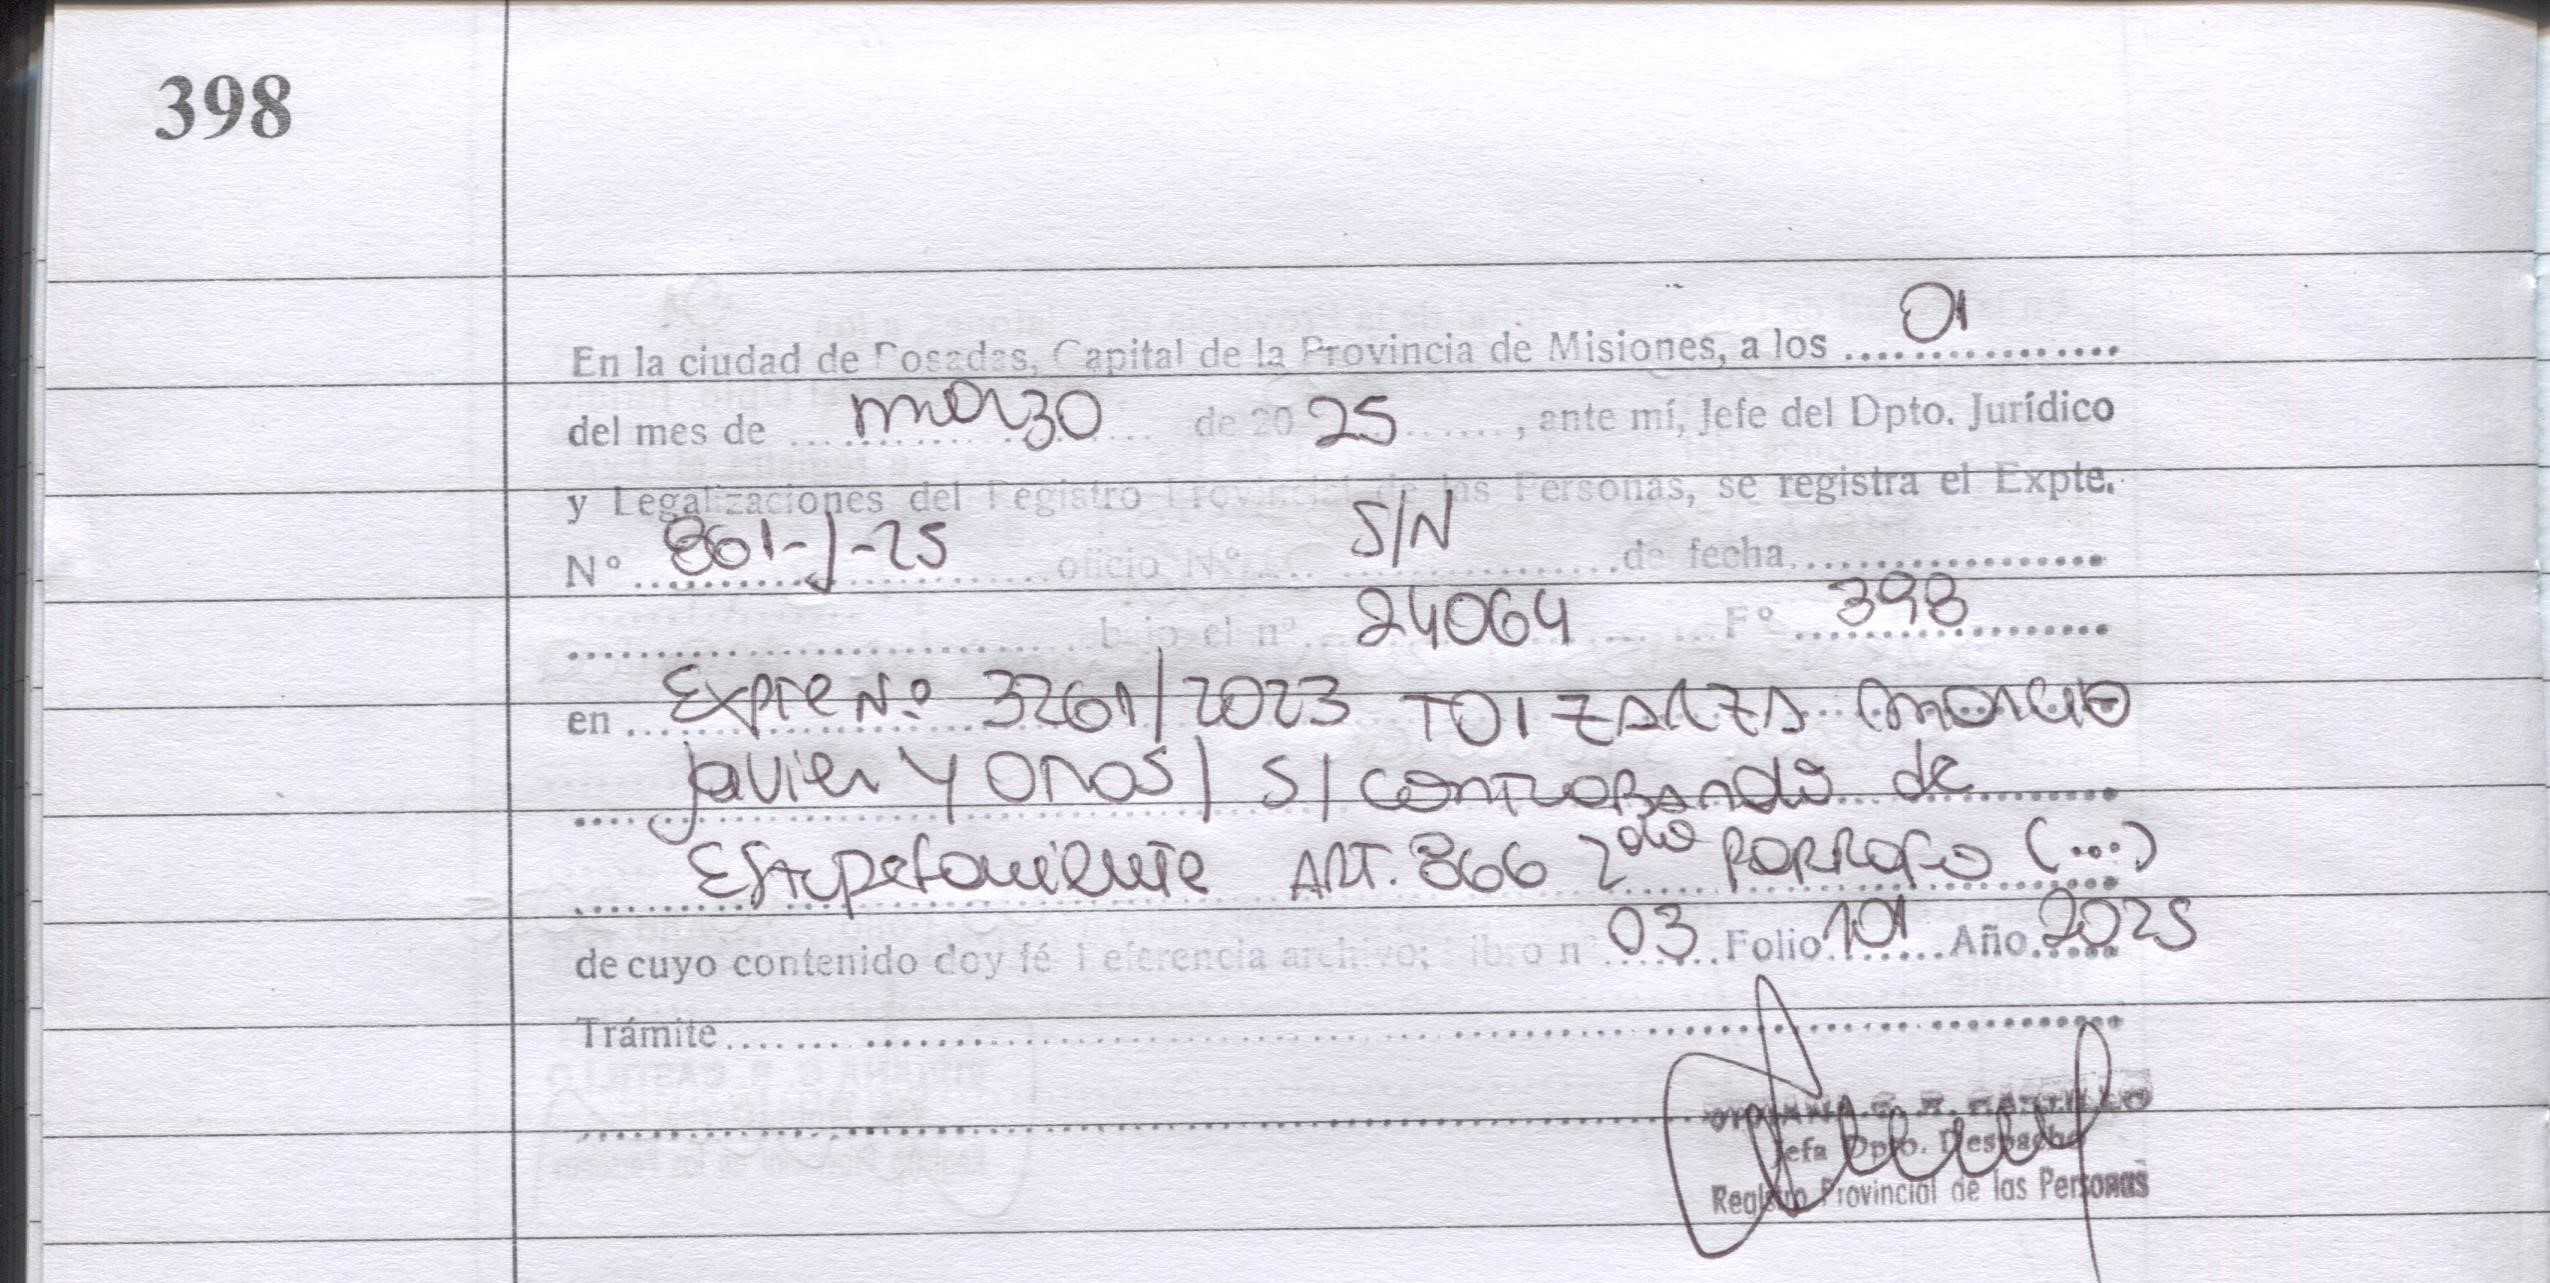 398
En la ciudad de Posadas, Capital de la Provincia de Misiones, a los 01
del mes de marzo de 2025, ante mí, Jefe del Dpto. Jurídico
y Legalizaciones del Registro Provincial de las Personas, se registra el Expte.
N° 861-J-25 oficio N° S/N de fecha
bajo el n° 24064 F° 398
en Expte N° 3261/2023 TOI ZARZA
Javier y Otros/ S/ Contrabando de
Estupefaciente ART. 866 2do Parrafo (...)
de cuyo contenido doy fé Referencia archivo; Libro n° 03 Folio 101 Año 2025
Trámite
Jefa Dpto. Despacho
Registro Provincial de las Personas